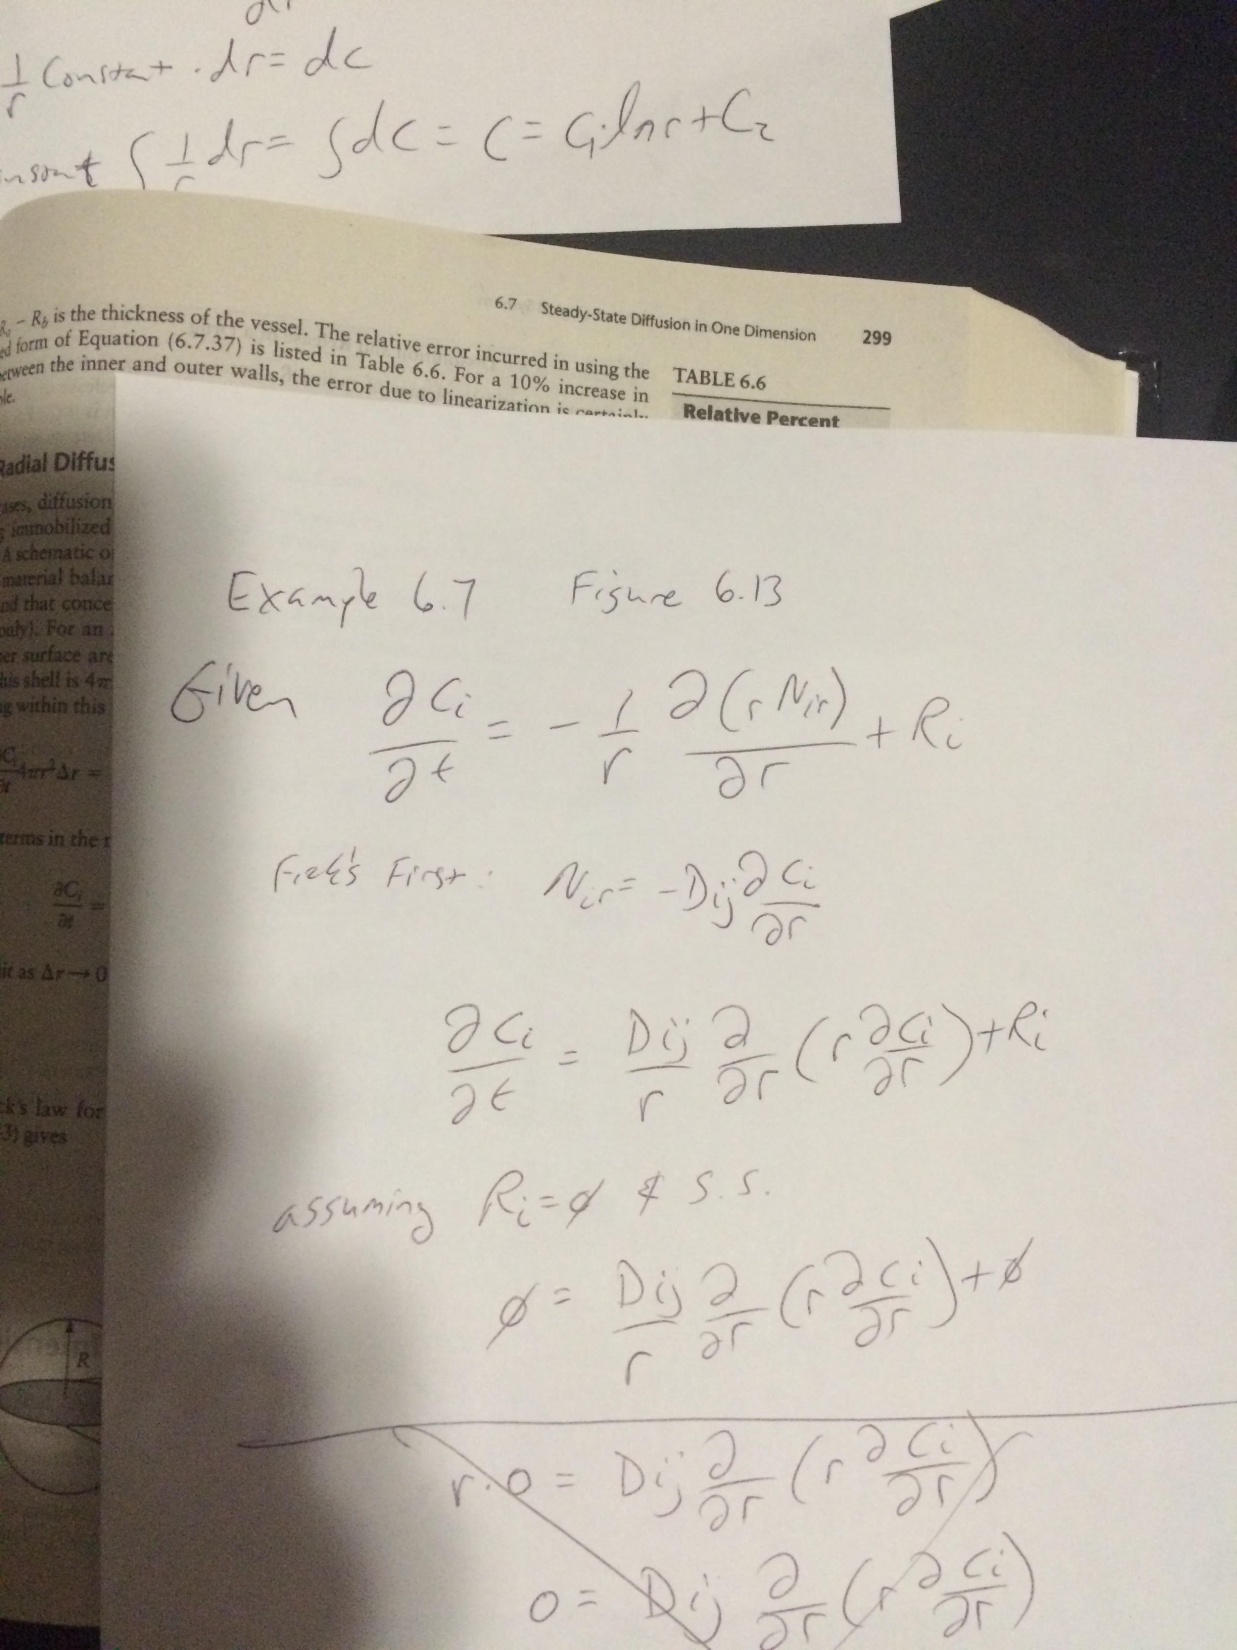 1/r Constant · dr = dc
∫ 1/r dr = ∫dc = C = C₁lnr + C₂
6.7 Steady-State Diffusion in One Dimension 299
– R_b is the thickness of the vessel. The relative error incurred in using the
form of Equation (6.7.37) is listed in Table 6.6. For a 10% increase in
between the inner and outer walls, the error due to linearization is certainly
TABLE 6.6
Relative Percent
Radial Diffus
diffusion
immobilized
A schematic o
material balan
nd that conce
only). For an
er surface are
his shell is 4π
g within this
∂C_i/∂t 4πr²Δr =
terms in the r
∂C_i/∂t =
it as Δr → 0
ck's law for
3) gives
R
Example 6.7 Figure 6.13
Given ∂C_i/∂t = – 1/r ∂(r N_ir)/∂r + R_i
Fick's First: N_ir = –D_ij ∂C_i/∂r
∂C_i/∂t = D_ij/r ∂/∂r (r ∂C_i/∂r) + R_i
assuming R_i = ϕ & s.s.
ϕ = D_ij/r ∂/∂r (r ∂C_i/∂r) + ϕ
r·0 = D_ij ∂/∂r (r ∂C_i/∂r)
0 = D_ij ∂/∂r (r ∂C_i/∂r)